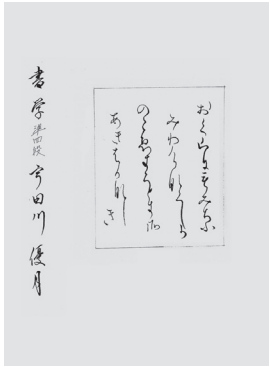 おく山にもみちふ
みわけ那くしか
のこゑきくとき
あきはか那し
き
書学 準四段 宇田川 優月